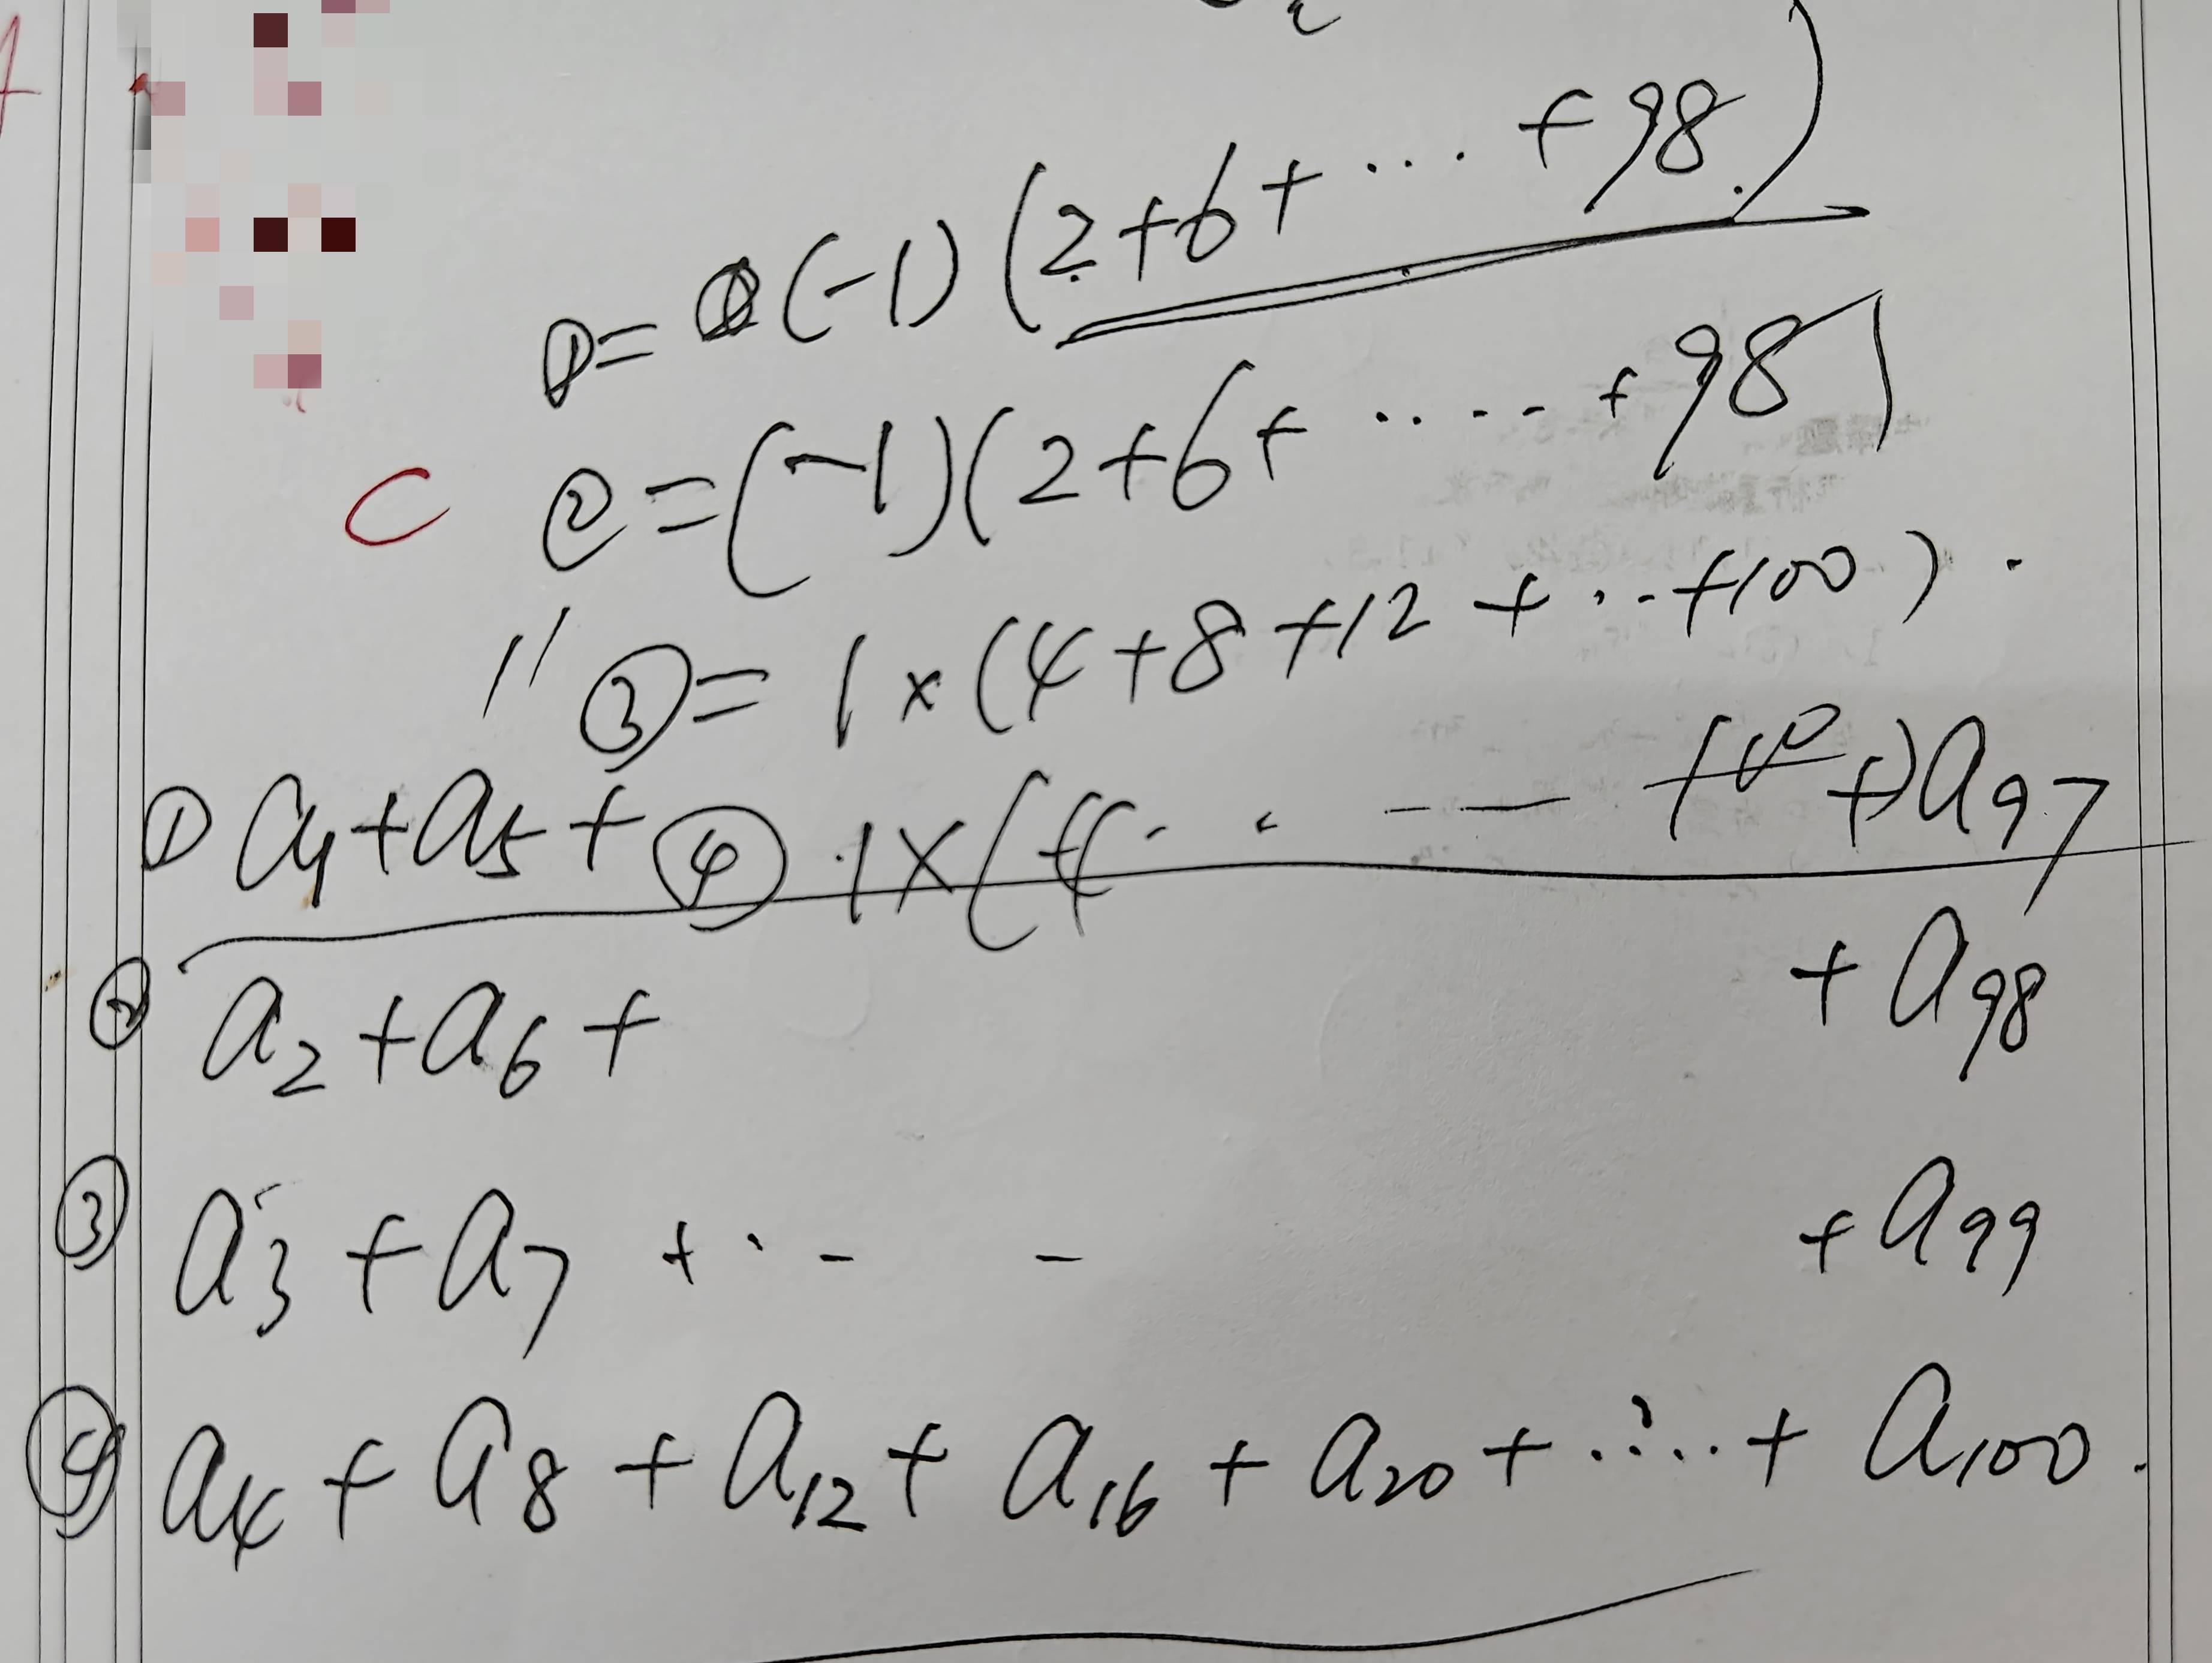 ①= (-1)(2+6+ ... +98)
C ②=(-1)(2+6+ ..... +98)
③= 1×(4+8+12+...+100).
④ 1×(4... +100)
① a₁+a₅+ +a₉₇
② a₂+a₆+ +a₉₈
③ a₃+a₇+... +a₉₉
④ a₄+a₈+a₁₂+a₁₆+a₂₀+.....+a₁₀₀.